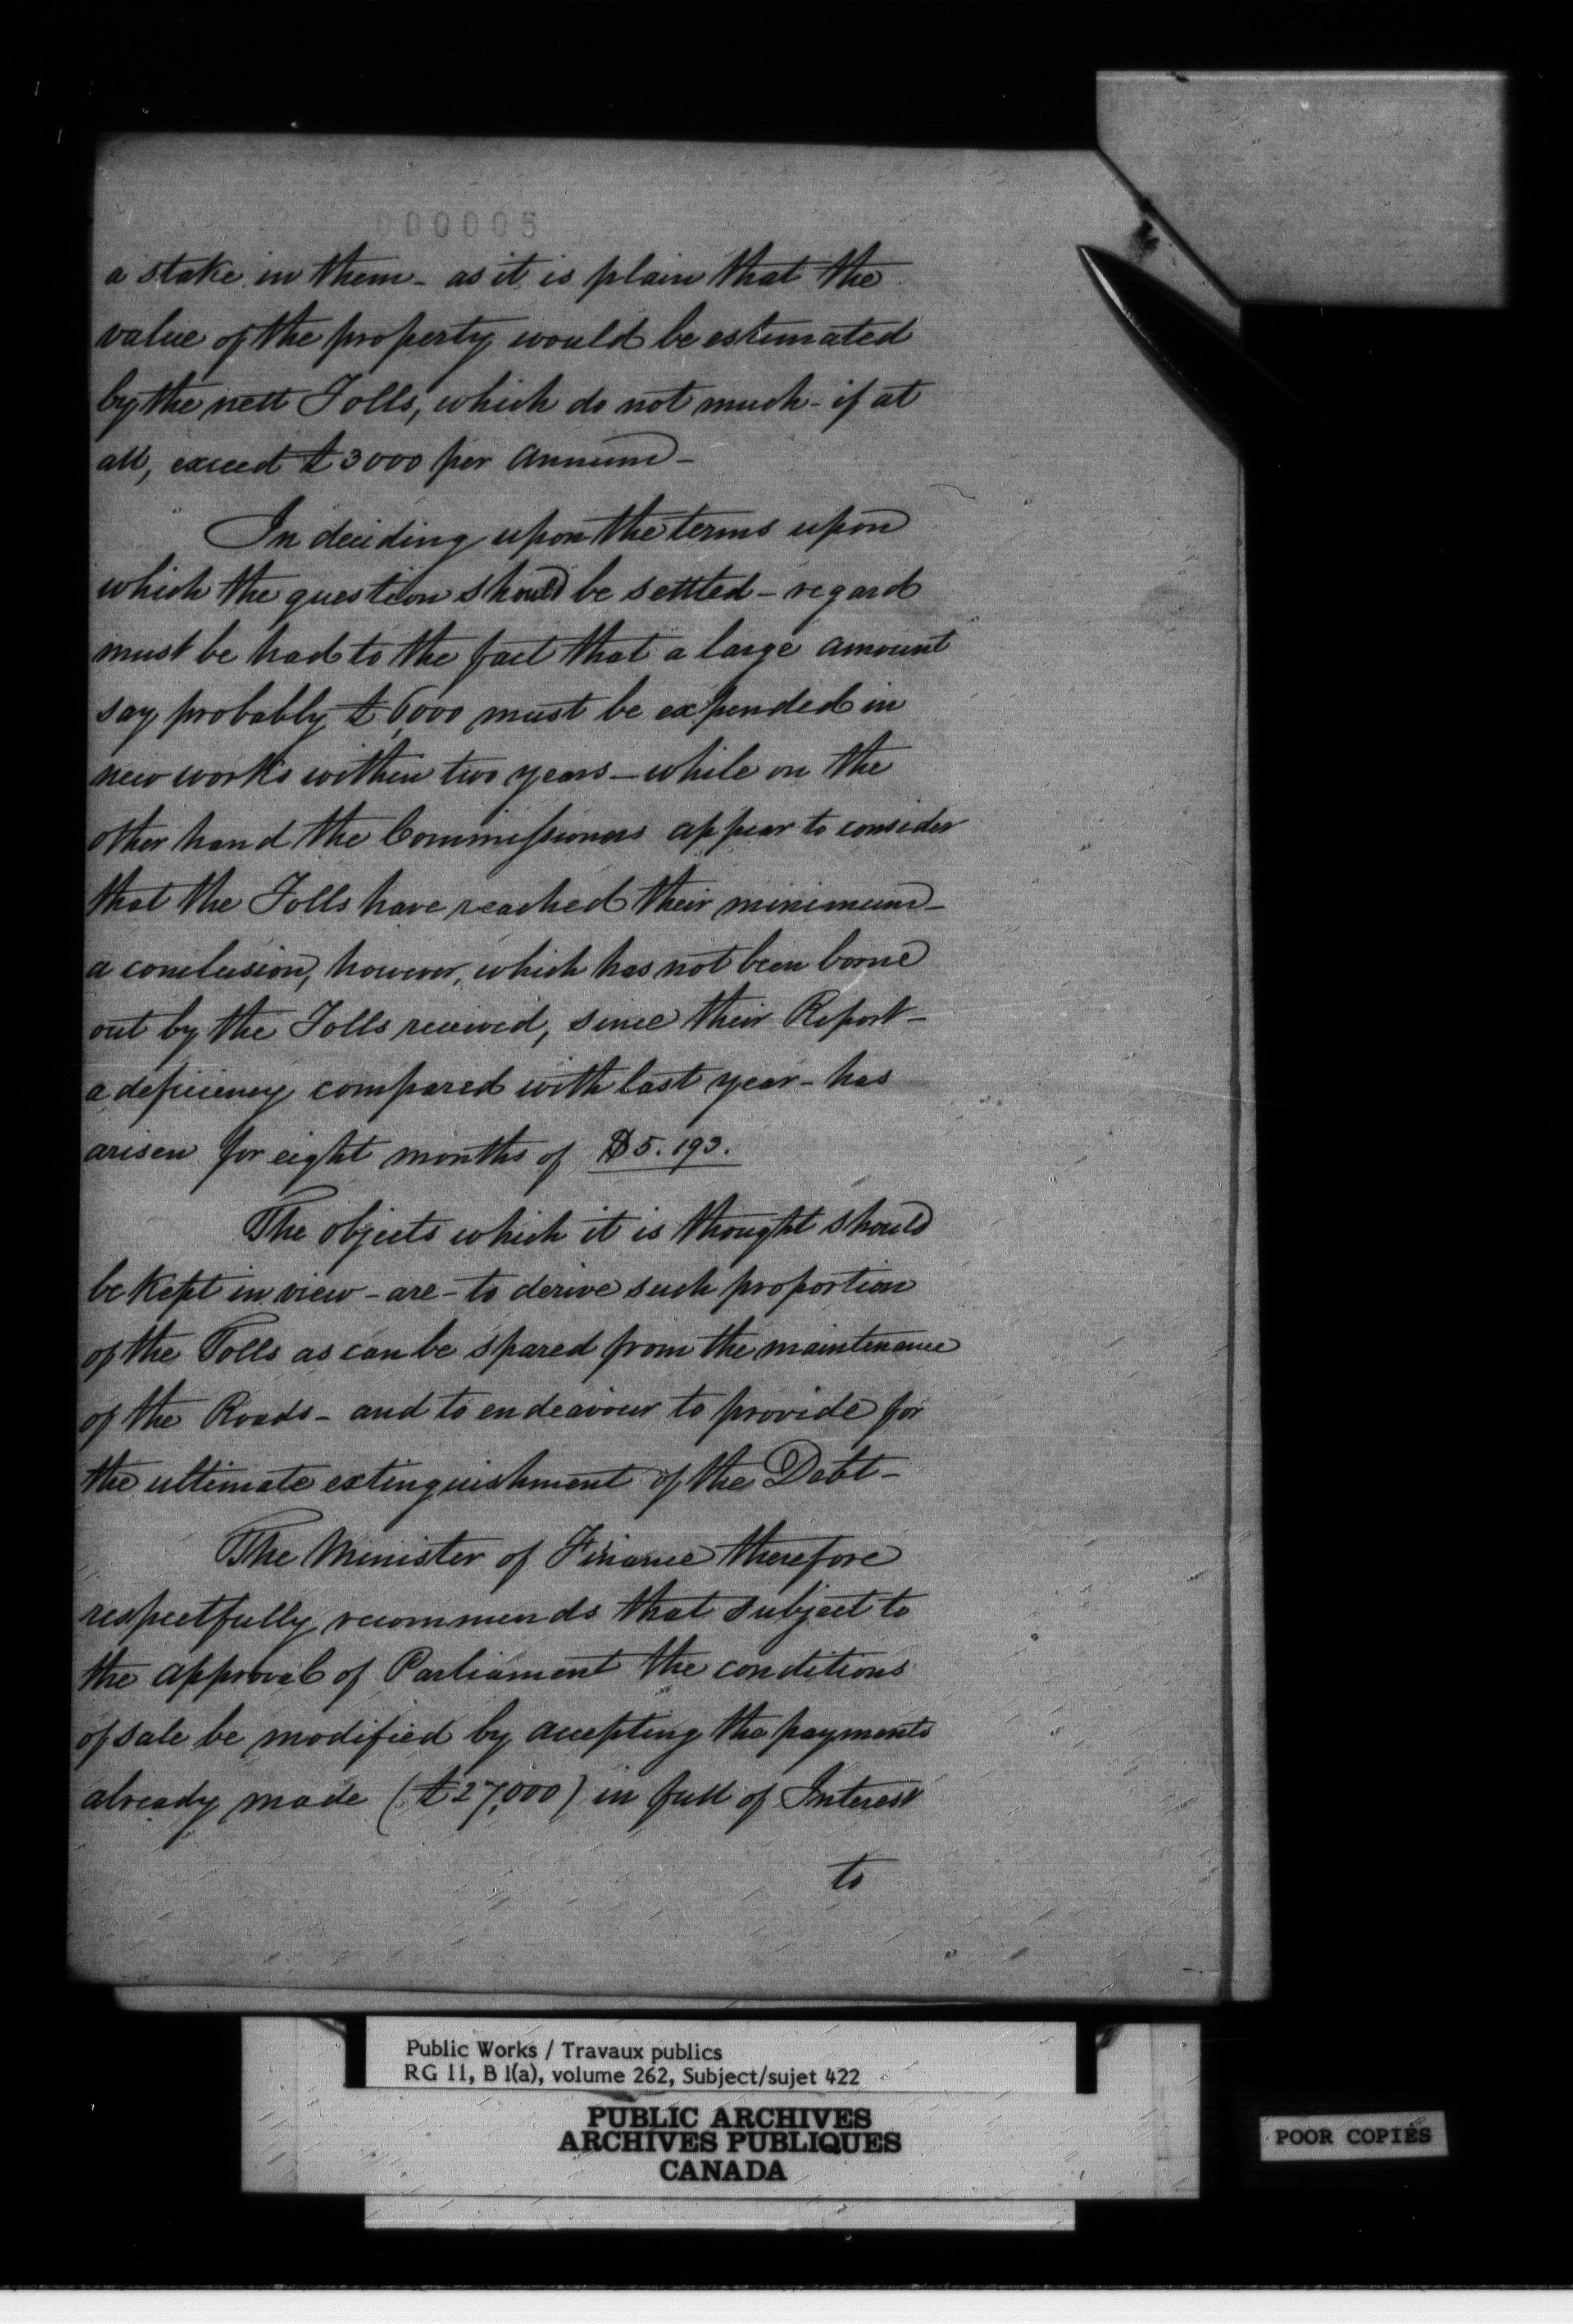 000005
a stake in them - as it is plain that the
value of the property would be estimated
by the nett Tolls, which do not much - if at
all, exceed £3000 per annum -
In deciding upon the terms upon
which the question should be settled - regard
must be had to the fact that a large amount
say probably £6,000 must be expended in
new works within two years - while on the
other hand the Commissioners appear to consider
that the Tolls have reached their minimum -
a conclusion, however, which has not been borne
out by the Tolls received, since their Report -
a deficiency compared with last year - has
arisen for eight months of $5.193.
The objects which it is thought should
be kept in view - are - to derive such proportion
of the Tolls as can be spared from the maintenance
of the Roads - and to endeavour to provide for
the ultimate extinguishment of the Debt -
The Minister of Finance therefore
respectfully recommends that subject to
the approval of Parliament the conditions
of sale be modified by accepting the payments
already made (£27,000) in full of Interest
to
Public Works / Travaux publics
RG 11, B 1(a), volume 262, Subject/sujet 422
PUBLIC ARCHIVES
ARCHIVES PUBLIQUES
CANADA
POOR COPIES